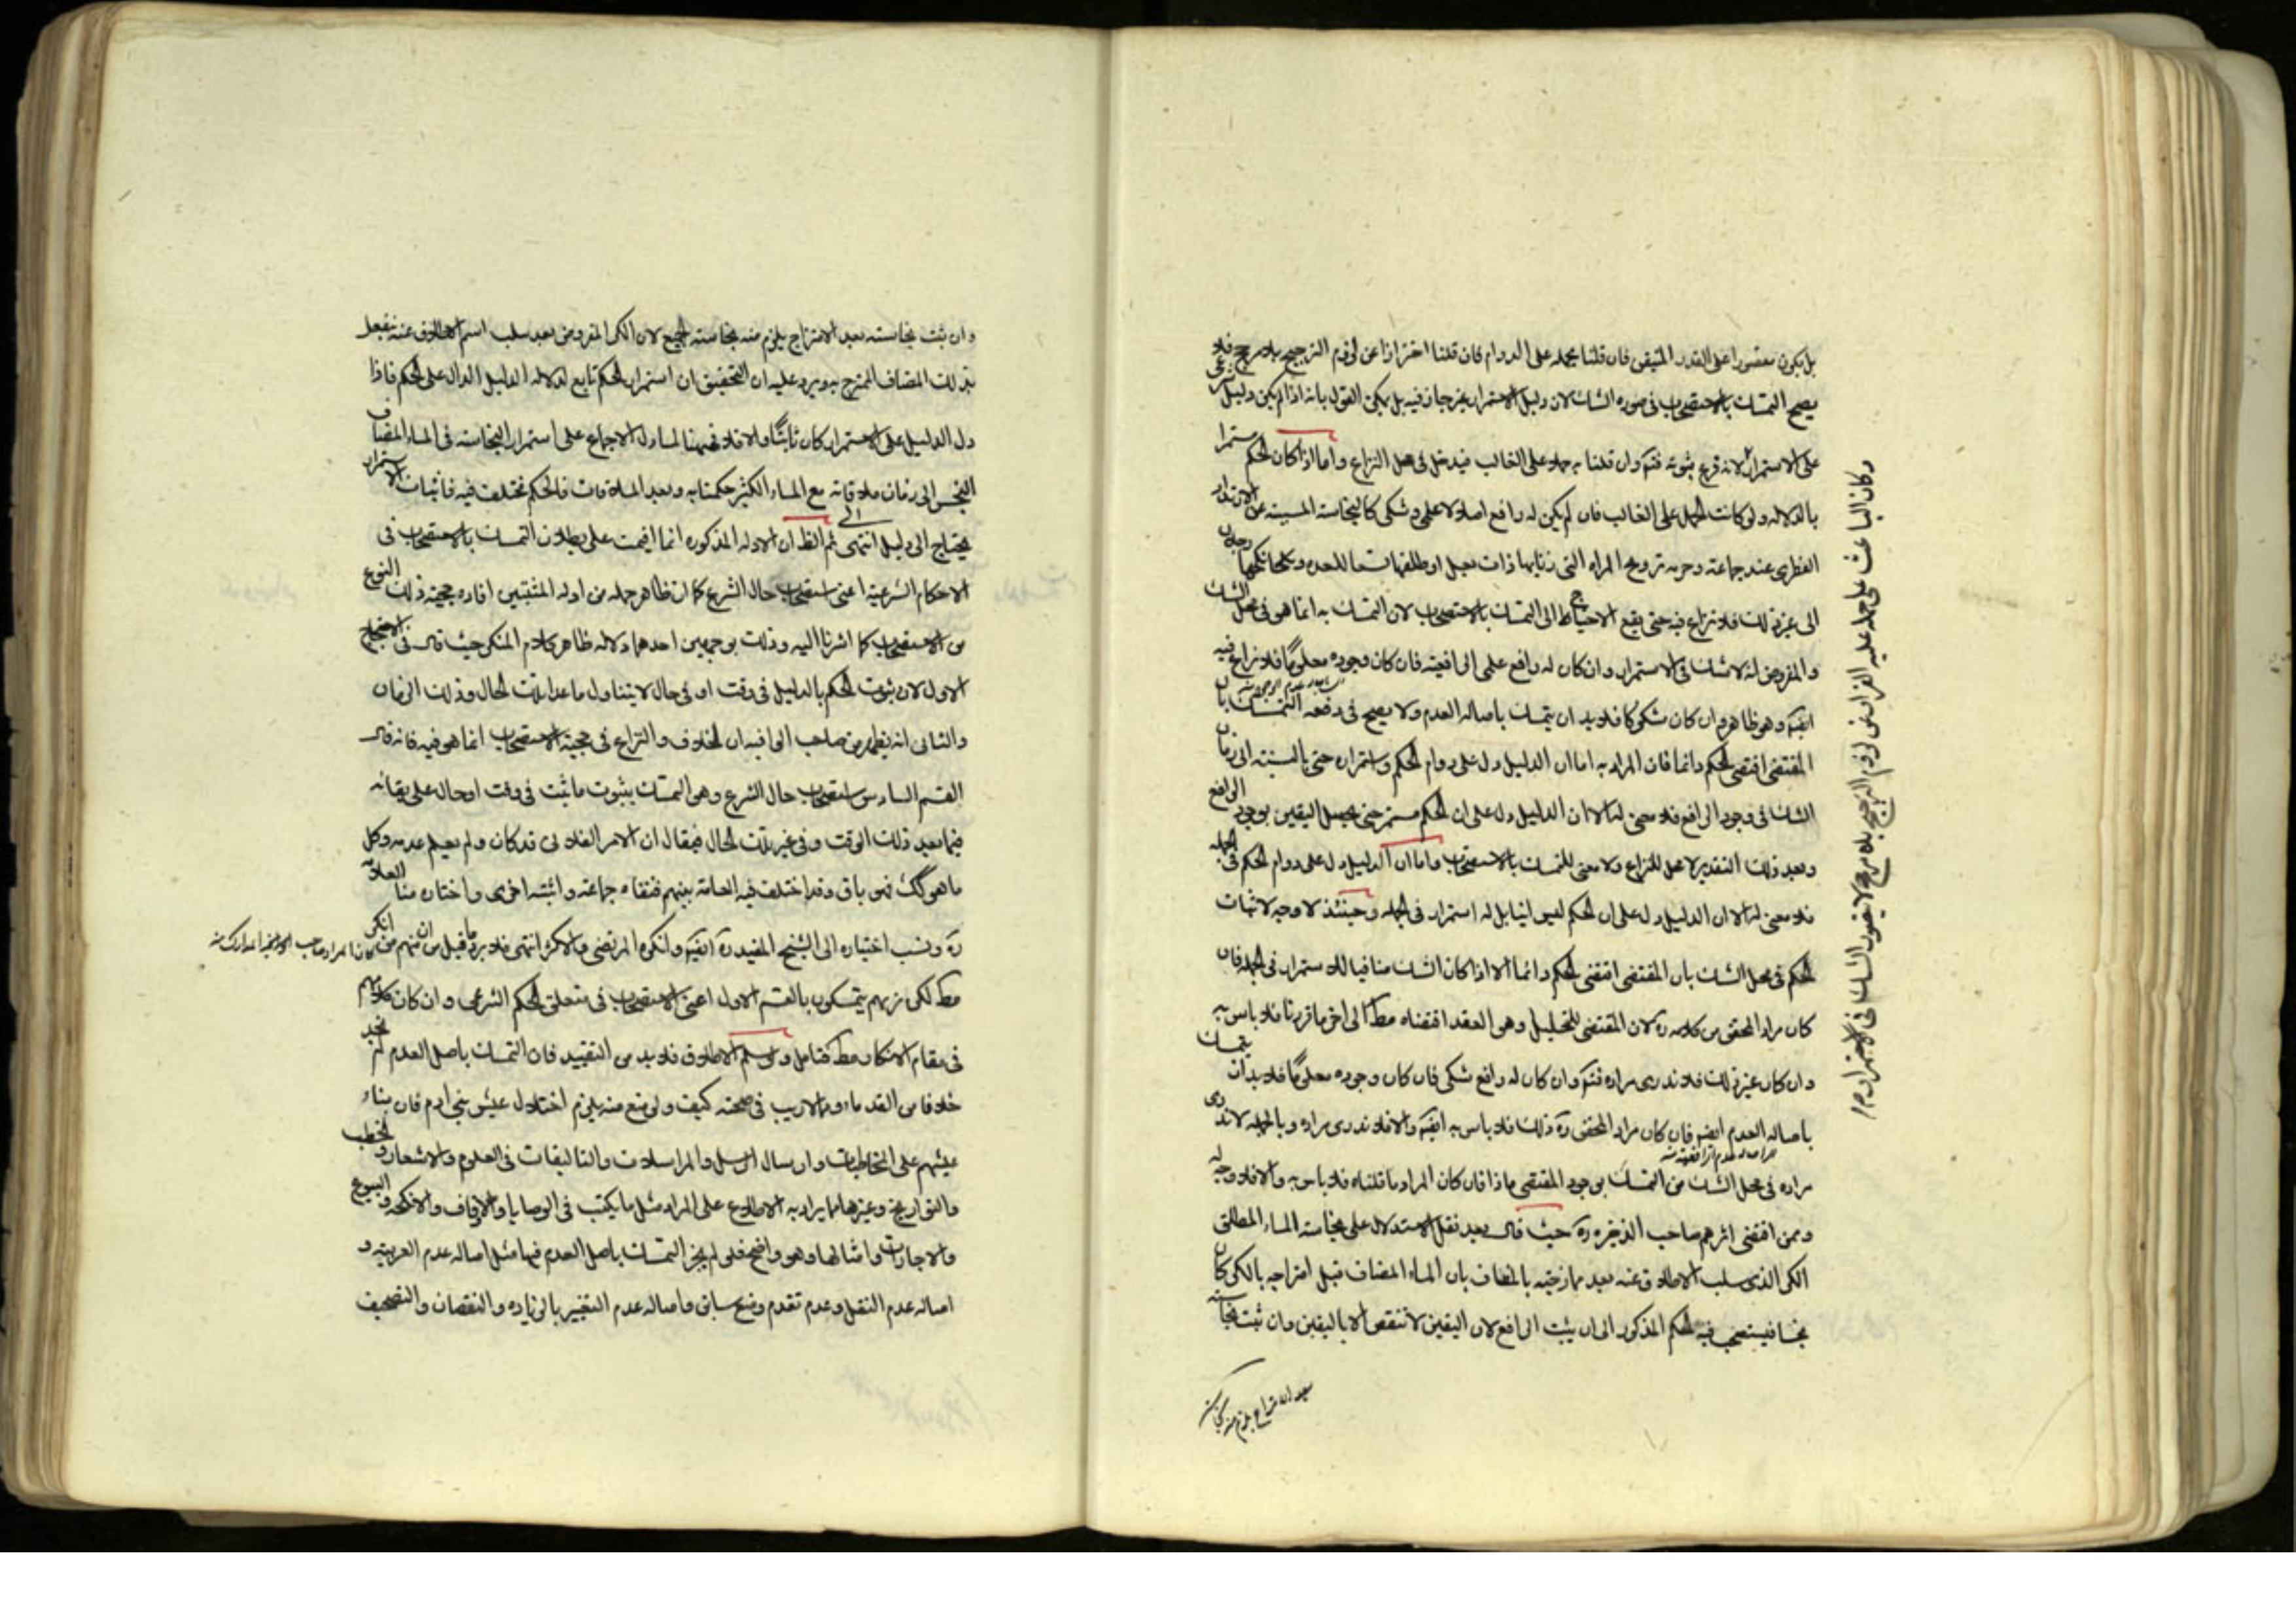 بل يكون مقصورا على القدر المتيقن فان قلنا بحمله على الدوام فان قلنا احترازا عن لزوم الترجيح بلا مرجح فلا
يصح التمسك بالاستصحاب فى صورة الشك لان دليل الاستمرار غير جار فيه بل يمكن القول بانه اذا لم يكن دليل شرعى
على الاستمرار لانه فرع ثبوته فتم وان قلنا به حملا على الغالب فيدخل فى محل النزاع واما اذا كان الحكم مستمرا
بالدلالة ولو كانت الحمل على الغالب فان لم يكن له رافع اصلا لا علمى و شكى كالنجاسة المسببة عن الارتداد
الفطرى عند جماعة وحرمة تزويج المراة التى زنا بها ذات بعل او طلقها تسعا للعدة وينكحها رجلان
الى غير ذلك فلا نزاع فيه حتى يقع الاحتياج الى التمسك بالاستصحاب لان التمسك به انما هو فى محل الشك
والمفروض انه لا شك فى الاستمرار وان كان له رافع علمى الرافعية فان كان وجوده معلوما فلا نزاع فيه
ايضا وهو ظاهر وان كان مشكوكا فلا بد ان يتمسك باصالة العدم ولا يصح فى دفعه التمسك بان
المقتضى اقتضى الحكم دائما فان المراد به اما ان الدليل دل على دوام الحكم واستمراره حتى بالنسبة الى زمان
الشك فى وجود الرافع فلا معنى له الا ان الدليل دل على ان الحكم مستمر حتى يحصل اليقين بوجود الرافع
وبعد ذلك التقدير لا محل للنزاع ولا معنى للتمسك بالاستصحاب واما ان الدليل دل على دوام الحكم فى الجملة
فلا معنى له الا ان الدليل دل على ان الحكم ليس انيا بل له استمرار فى الجملة وحينئذ لا وجه لاثبات
الحكم فى محل الشك بان المقتضى اقتضى الحكم دائما الا اذا كان الشك منافيا للاستمرار فى الجملة فان
كان مراد المحقق من كلامه ره لان المقتضى للتحليل وهو العقد اقتضاه مطلقا الى اخر ما قررنا فلا باس به
وان كان غير ذلك فلا ندرى مراده فتم وان كان له رافع شكى فان كان وجوده معلوما فلا بد ان يتمسك
باصالة العدم ايضا فان كان مراد المحقق ره ذلك فلا باس به ايضا والا فلا ندرى مراده وبالجملة لا ندرى
مراده فى محل الشك من التمسك بوجود المقتضى ماذا فان كان المراد ما قلناه فلا باس به والا فلا وجه له
وممن اقتفى اثرهم صاحب الذخيرة ره حيث قال بعد نقل الاستدلال على نجاسة الماء المطلق
الكر الذى سلب الاطلاق عنه بعد ممازجته بالمضاف بان الماء المضاف قبل امتزاجه بالكر كان
نجسا فيستصحب فيه الحكم المذكور الى ان يثبت الرافع لان اليقين لا تنقض الا باليقين وان ثبت نجاسته
بعد الامتزاج يلزم منه نجاسة
وكان الباعث على حمله عليه الفرار من لزوم الترجيح بلا مرجح لا يضره الشك فى الاستمرار
وان ثبت نجاسته بعد الامتزاج يلزم منه نجاسة الجميع لان الكر المفروض بعد سلب اسم الاطلاق عنه ينفعل
بذلك المضاف الممتزج به ويرد عليه ان التحقيق ان استمرار الحكم تابع لدلالة الدليل الدال على الحكم فاذا
دل الدليل على الاستمرار كان ثابتا والا فلا فههنا لما دل الاجماع على استمرار النجاسة فى الماء المضاف
النجس الى زمان ملاقاته مع الماء الكثير حكمنا به وبعد الملاقات فالحكم مختلف فيه فاثبات الاستمرار
يحتاج الى دليل انتهى ثم الظ ان الادلة المذكورة انما اقيمت على بطلان التمسك بالاستصحاب فى
الاحكام الشرعية اعنى استصحاب حال الشرع كما ان ظاهر جملة من ادلة المثبتين افادة حجية ذلك النوع
من الاستصحاب كما اشرنا اليه وذلك بوجهين احدهما دلالة ظاهر كلام المنكر حيث قال فى الاحتجاج
الاول لان ثبوت الحكم بالدليل فى وقت او فى حال لا يتناول ما عدا تلك الحال وذلك الزمان
والثانى انه يظهر من صاحب الوافية ان الخلاف والنزاع فى حجية الاستصحاب انما هو فيه فانه قال
القسم السادس استصحاب حال الشرع وهو التمسك بثبوت ما ثبت فى وقت او حال على بقائه
فيما بعد ذلك الوقت وفى غير تلك الحال فيقال ان الامر الفلانى قد كان ولم يعلم عدمه وكل
ما هو كك فهو باق وقد اختلف فيه العامة بينهم فنفاه جماعة واثبته اخرى واختاره منا العلامة
ره ونسب اختياره الى الشيخ المفيد ره ايضا وانكره المرتضى والاكثر انتهى فلا يرد ما قيل من ان منهم من انكر
مط لكنهم يتمسكون بالقسم الاول اعنى الاستصحاب فى متعلق الحكم الشرعى وان كان كلامهم
فى مقام الانكار مط فتامل ولو سلم الاطلاق فلا بد من التقييد فان التمسك باصل العدم لم نجد
خلافا من القدماء ولا ريب فى صحته كيف ولو منع منه يلزم اختلال عيش بنى ادم فان بناء
عيشهم على المخاطبات وارسال الرسل والمراسلات والتاليفات فى العلوم والاشعار والخطب
والتواريخ وغيرها مما يراد به الاطلاع على المراد مثل ما يكتب فى الوصايا والاوقاف والانكحة والبيوع
والاجارات وامثالها وهو واضح فلو لم يجز التمسك باصل العدم فيها مثل اصالة عدم القرينة و
اصالة عدم النقل وعدم تقدم وضع سابق واصالة عدم التغيير بالزيادة والنقصان والتصحيف